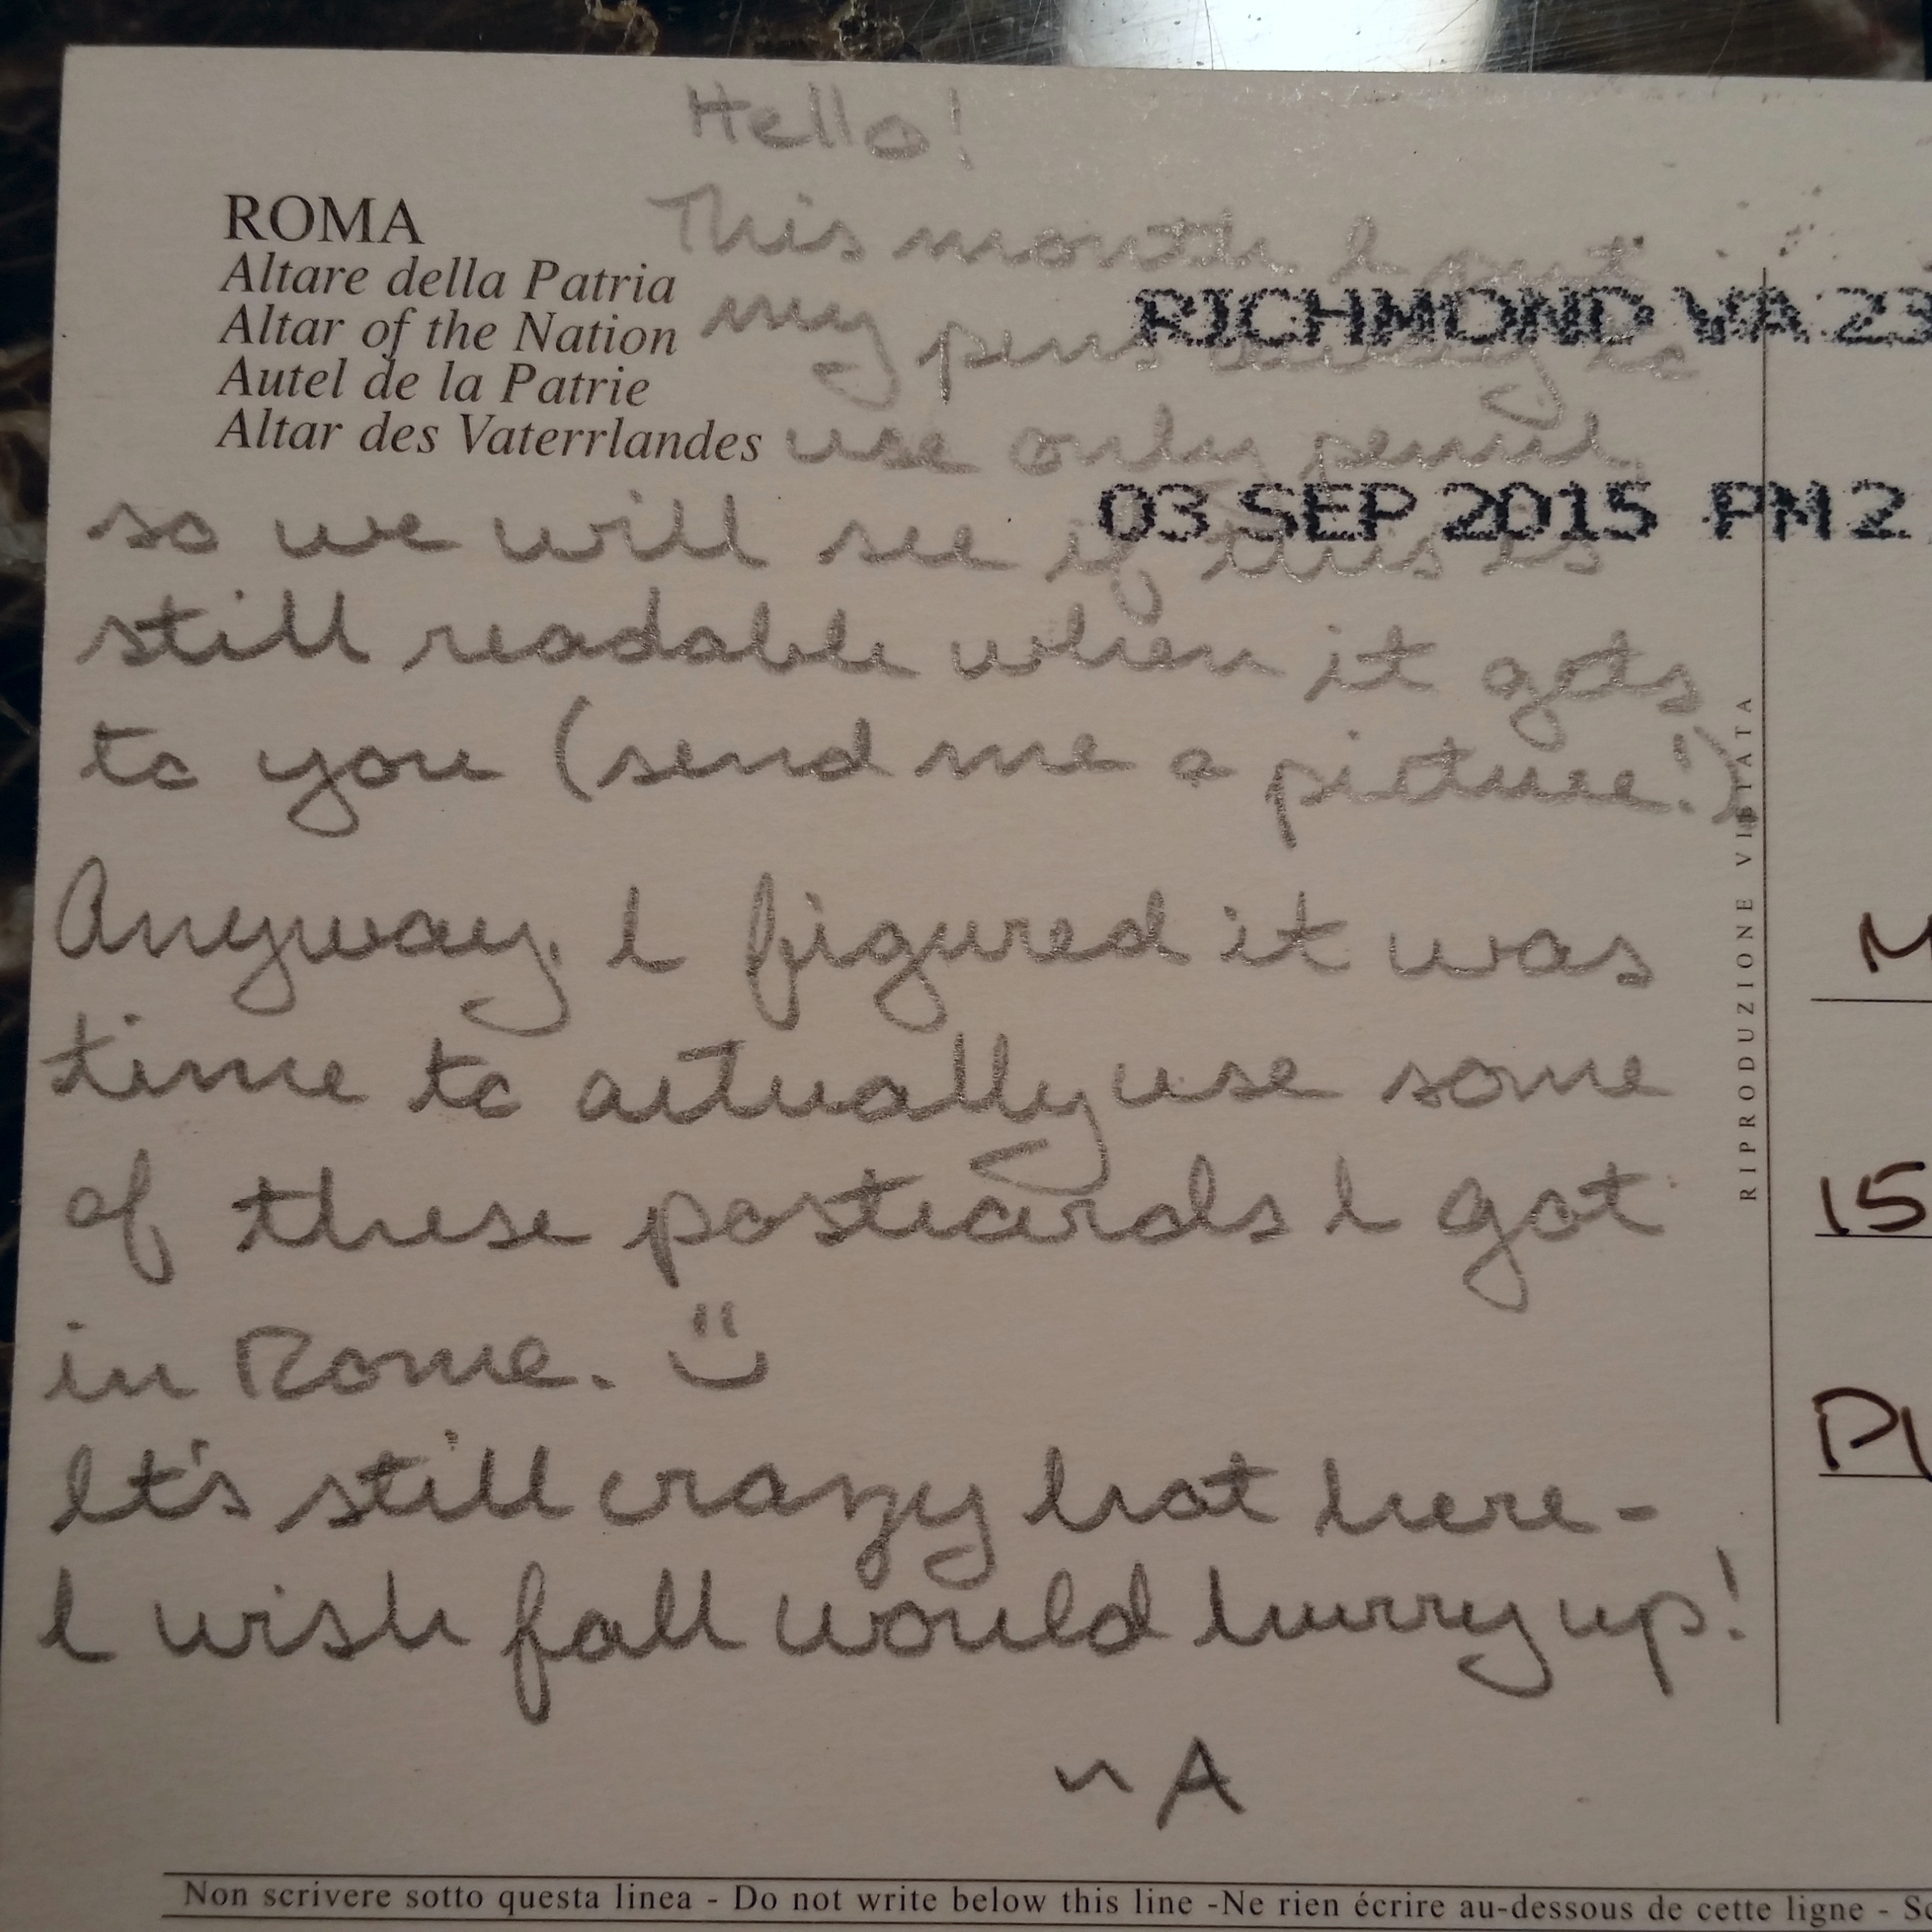 Hello!
ROMA
Altare della Patria
Altar of the Nation
Autel de la Patrie
Altar des Vaterrlandes
This month I put
my pens away to
use only pencil,
RICHMOND VA 23
03 SEP 2015 PM 2
so we will see if this is
still readable when it gets
to you (send me a picture!)
Anyway, I figured it was
time to actually use some
of these postcards I got
in Rome. :)
It's still crazy hot here -
I wish fall would hurry up!
~ A
RIPRODUZIONE VIETATA
M
15
Pl
Non scrivere sotto questa linea - Do not write below this line -Ne rien écrire au-dessous de cette ligne - S